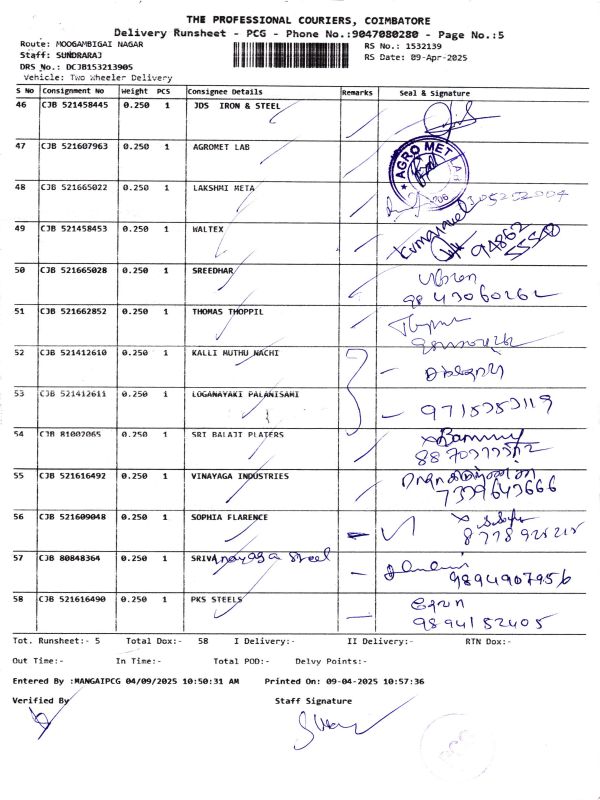 THE PROFESSIONAL COURIERS, COIMBATORE
Delivery Runsheet - PCG - Phone No.:9047080280 - Page No.:5
Route: MOOGAMBIGAI NAGAR
RS No.: 1532139
Staff: SUNDRARAJ
RS Date: 09-Apr-2025
DRS No.: DCJB153213905
Vehicle: Two Wheeler Delivery
S No Consignment No Weight PCS Consignee Details Remarks Seal & Signature
46 CJB 521458445 0.250 1 JDS IRON & STEEL
47 CJB 521607963 0.250 1 AGROMET LAB AGRO MET LAB
48 CJB 521665022 0.250 1 LAKSHMI META
49 CJB 521458453 0.250 1 WALTEX 94862 55550
50 CJB 521665028 0.250 1 SREEDHAR 9843060262
51 CJB 521662852 0.250 1 THOMAS THOPPIL
52 CJB 521412610 0.250 1 KALLI MUTHU NACHI
53 CJB 521412611 0.250 1 LOGANAYAKI PALANISAMI
54 CJB 81002065 0.250 1 SRI BALAJI PLATERS
55 CJB 521616492 0.250 1 VINAYAGA INDUSTRIES 7339643666
56 CJB 521609048 0.250 1 SOPHIA FLARENCE
57 CJB 80848364 0.250 1 SRIVinayaga Steel 9894907956
58 CJB 521616490 0.250 1 PKS STEELS 9894152405
Tot. Runsheet:- 5 Total Dox:- 58 I Delivery:- II Delivery:- RTN Dox:-
Out Time:- In Time:- Total POD:- Delvy Points:-
Entered By :MANGAIPCG 04/09/2025 10:50:31 AM Printed On: 09-04-2025 10:57:36
Verified By Staff Signature